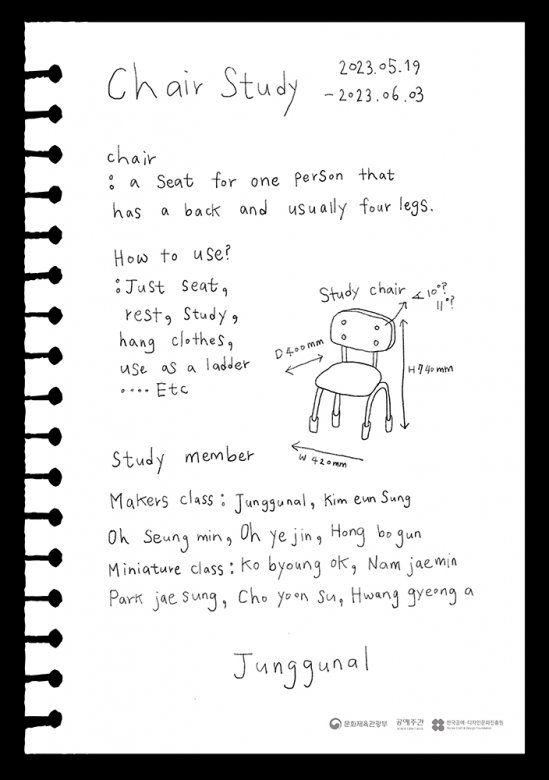 Chair Study
2023.05.19
- 2023.06.03
chair
: a seat for one person that
has a back and usually four legs.
How to use?
: Just seat,
rest, study,
hang clothes,
use as a ladder
.... Etc
Study chair
∡ 10°?
11°?
D 400mm
H 740mm
W 420mm
Study member
Makers class : Junggunal, Kim eun Sung
Oh Seung min, Oh ye jin, Hong bo gun
Miniature class : Ko byoung ok, Nam jaemin
Park jae sung, Cho yoon su, Hwang gyeong a
Junggunal
문화체육관광부
공예주간
한국공예·디자인문화진흥원
Korea Craft & Design Foundation